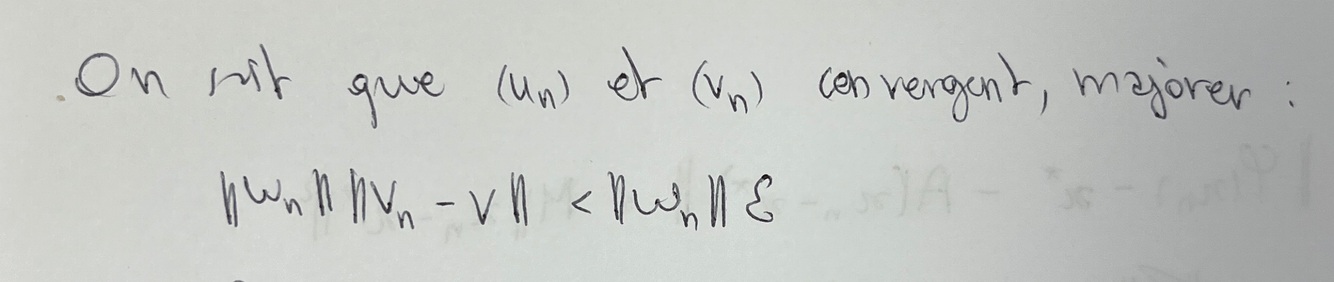 On sait que (un) et (vn) convergent, majorer :
||wn|| ||vn - v|| < ||wn|| ε